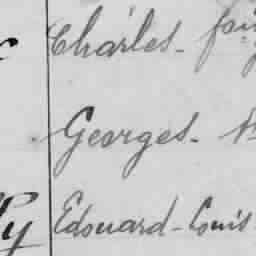 Charles -
Georges -
Edouard - Louis